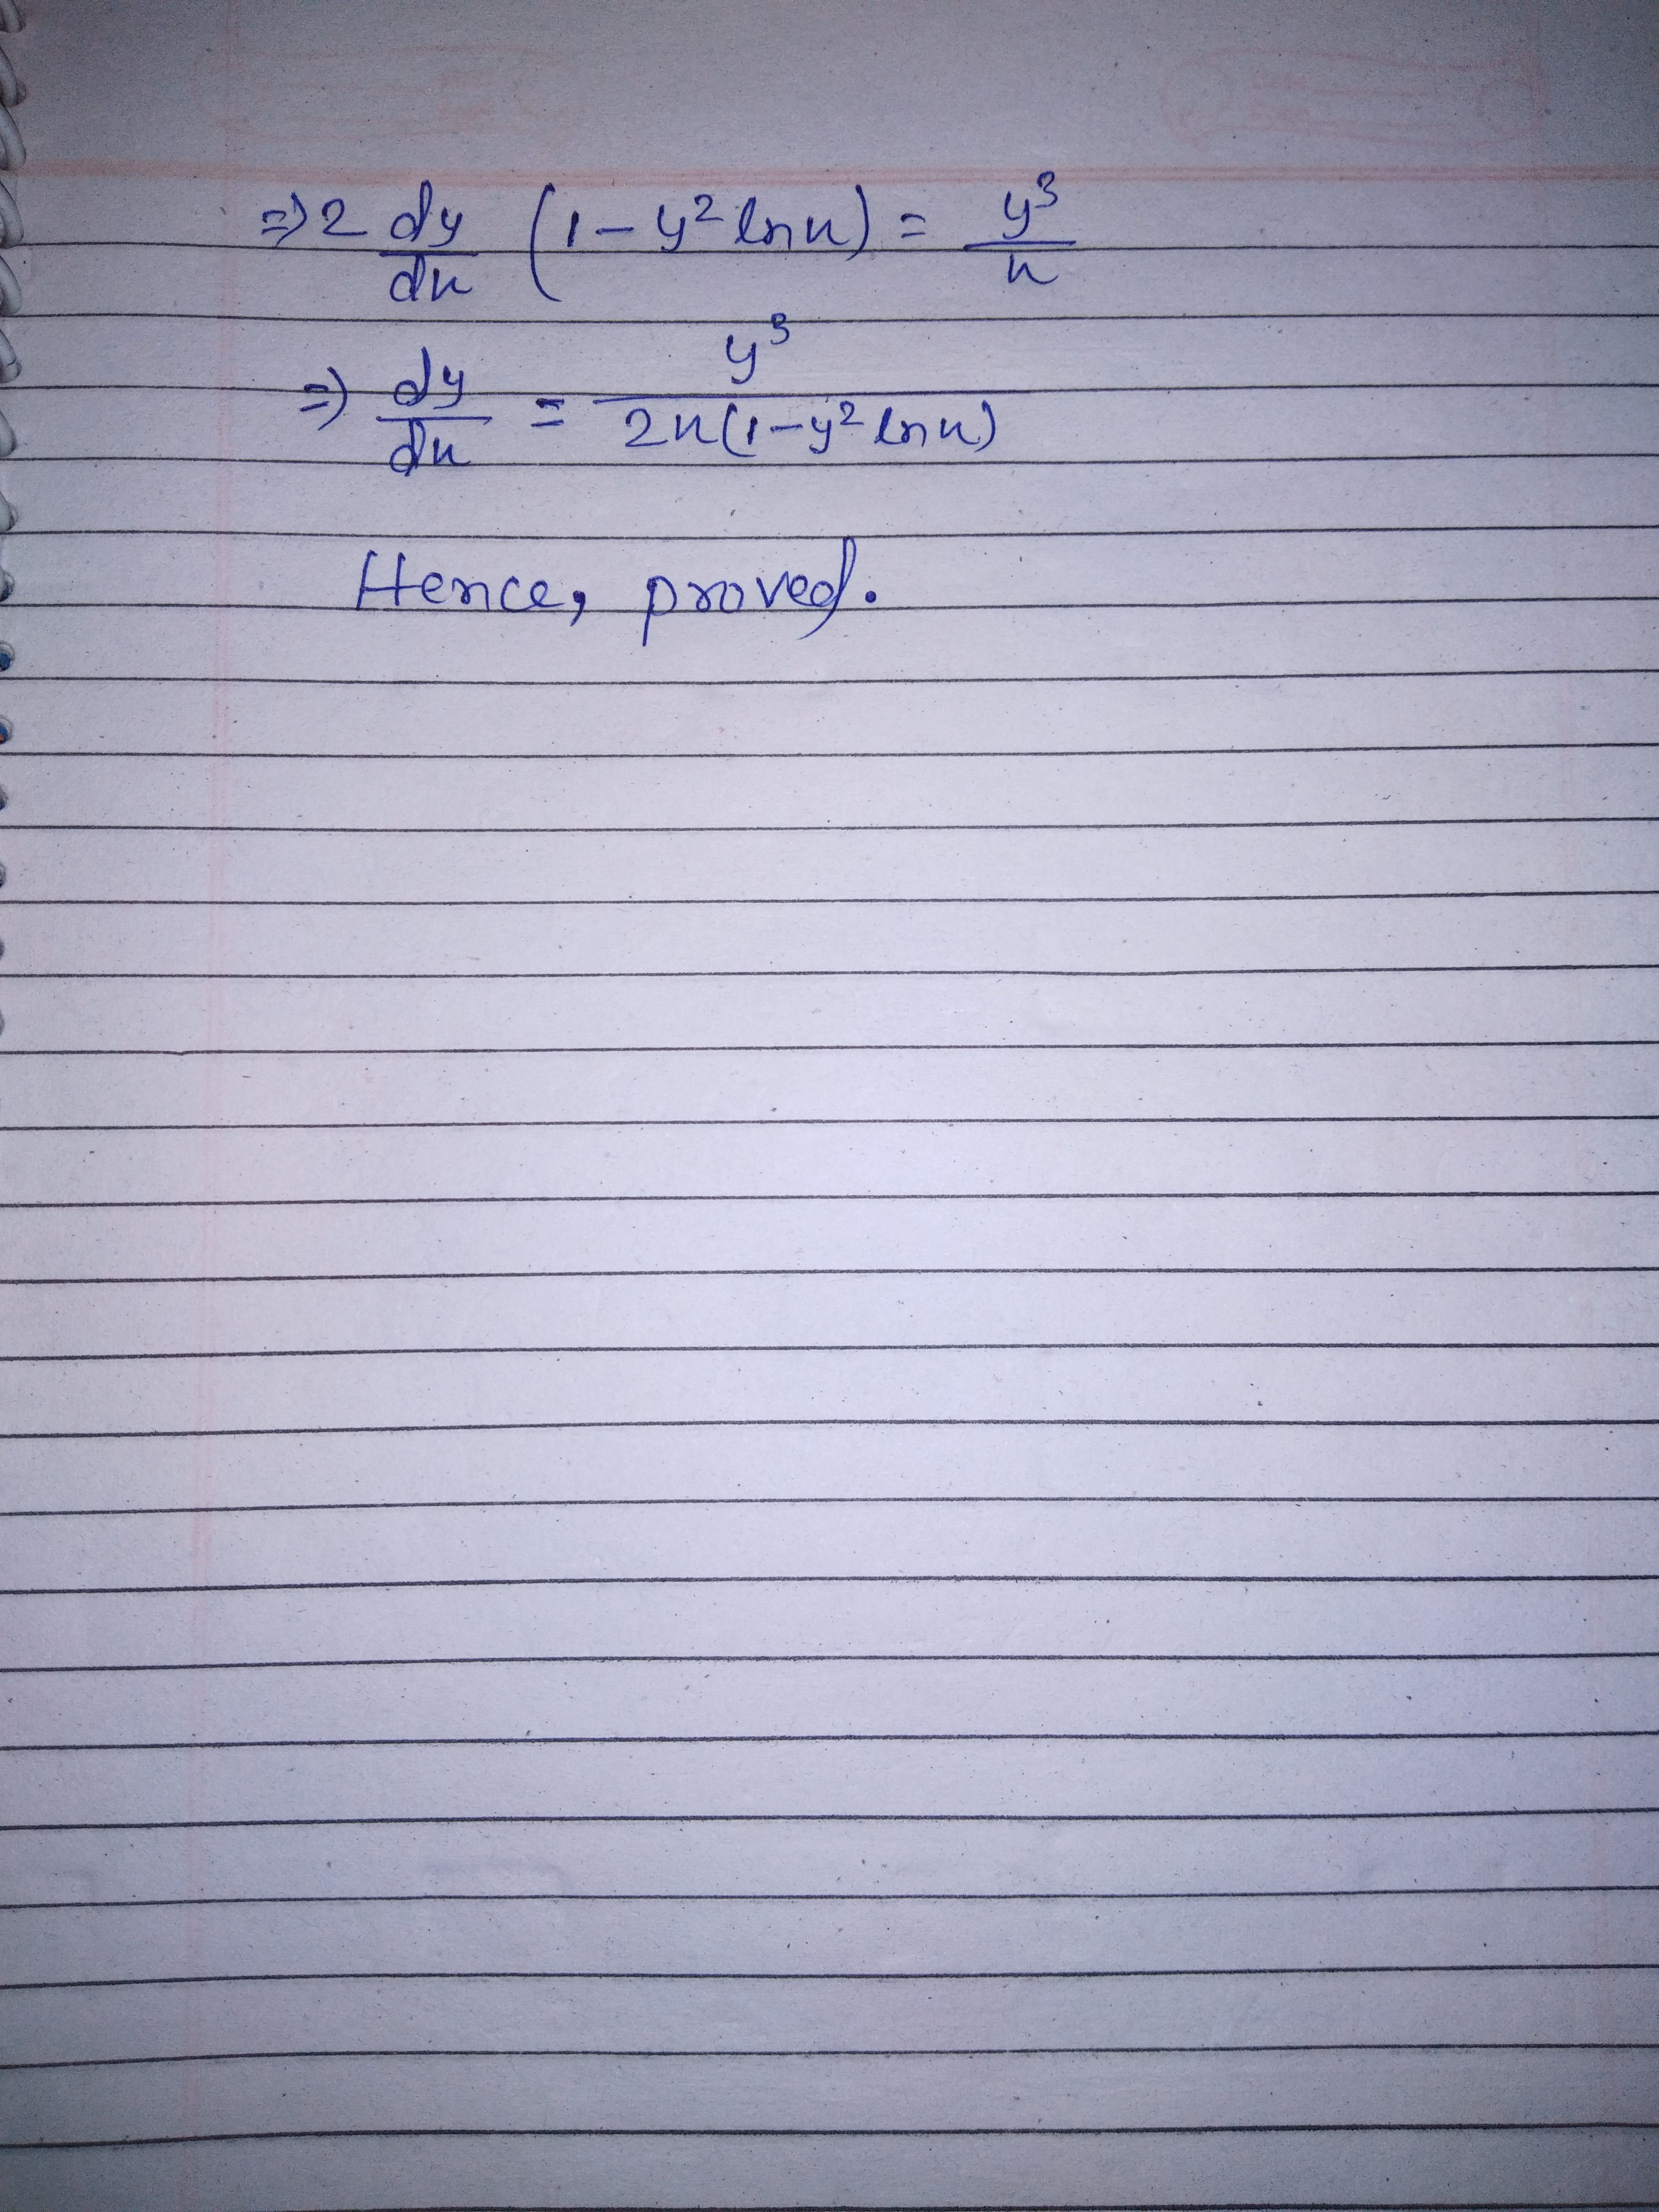 ⇒ 2 dy/dx (1 - y² ln x) = y³/x
⇒ dy/dx = y³/2x(1 - y² ln x)
Hence, proved.